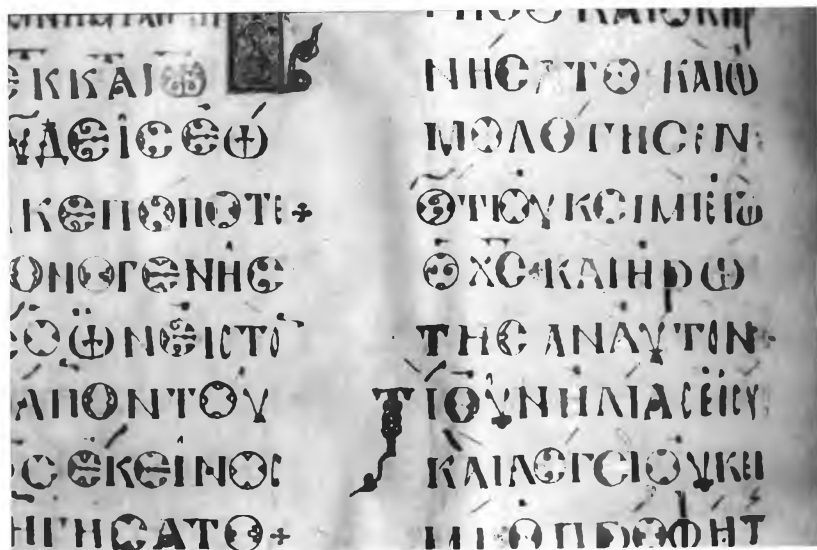 ΚΚΑΙ
ΥΔΕΙCΕΩ
ΑΚΕΠΟΠΟΤΕ+
ΟΝΟΓΕΝΗC
ΟΩΝΕΙCΤΟ
ΛΠΟΝΤΟΥ
ΟCΕΚΕΙΝΟC
ΗΓΗCΑΤΟ+
ΝΗCΑΤΟ ΚΑΙΩ
ΜΟΛΟΓΗCΕΝ
ΟΤΙΟΥΚΕΙΜΕΙΓΩ
ΟΧC+ΚΑΙΗΡΩ
ΤΗCΑΝΑΥΤΟΝ
ΤΙΟΥΝΗΛΙΑCΕΙCΥ
ΚΑΙΛΕΓΕΙΟΥΚΕΙ
ΜΙΟΠΡΟΦΗΤ